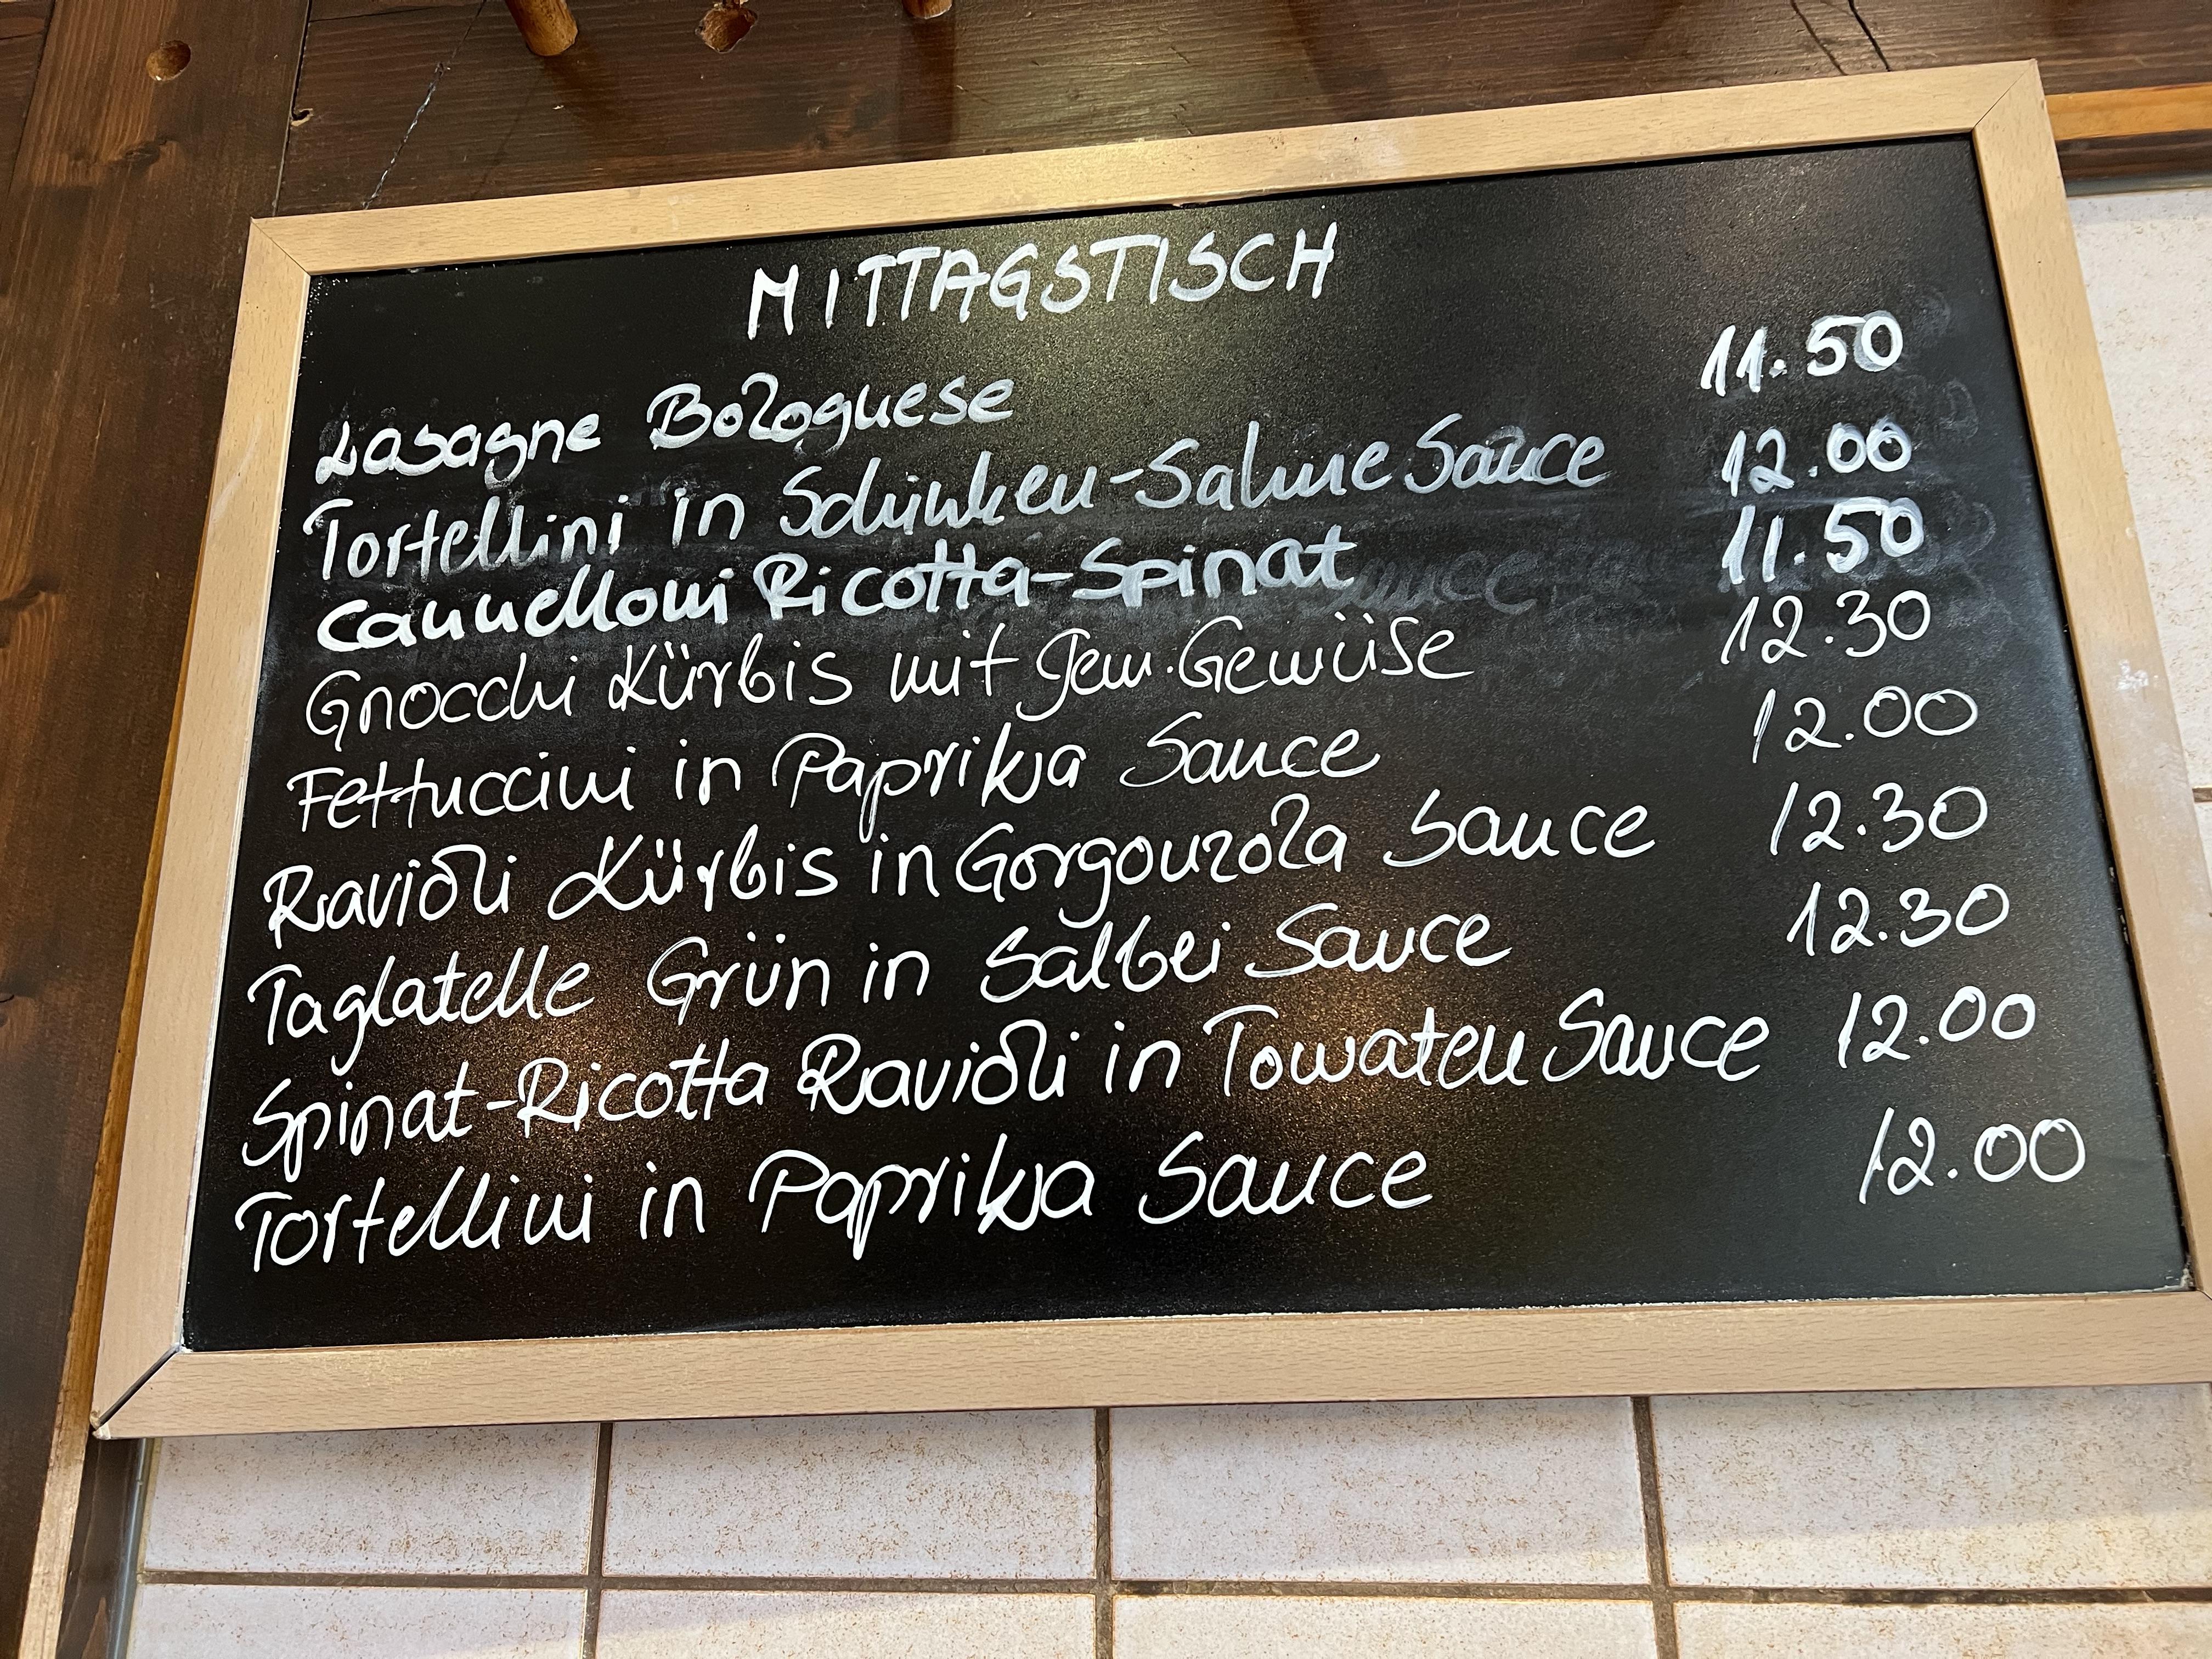 MITTAGSTISCH
Lasagne Bolognese 11.50
Tortellini in Schinken-Sahne Sauce 12.00
Cannelloni Ricotta-Spinat 11.50
Gnocchi Kürbis mit gem. Gewüse 12.30
Fettuccini in Paprika Sauce 12.00
Ravioli Kürbis in Gorgonzola Sauce 12.30
Taglatelle Grün in Salbei Sauce 12.30
Spinat-Ricotta Ravioli in Tomaten Sauce 12.00
Tortellini in Paprika Sauce 12.00